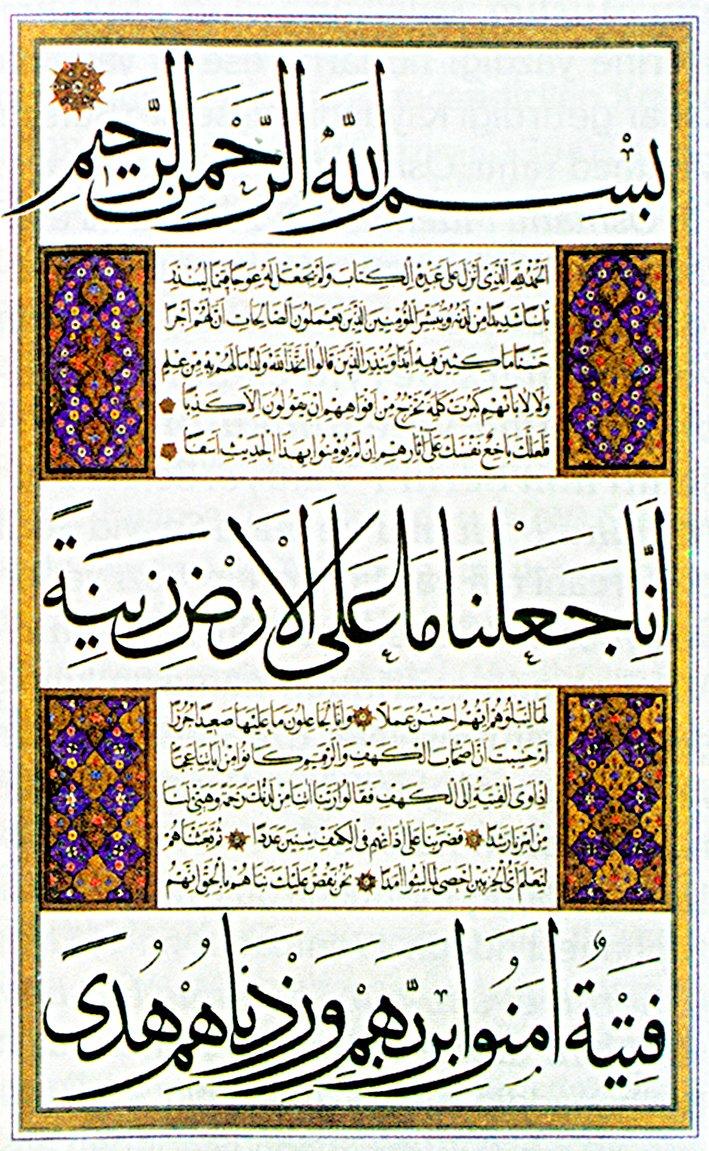 بِسْمِ اللّٰهِ الرَّحْمٰنِ الرَّحِيمِ
اَلْحَمْدُ لِلّٰهِ الَّذِى اَنْزَلَ عَلٰى عَبْدِهِ الْكِتَابَ وَلَمْ يَجْعَلْ لَهُ عِوَجًا قَيِّمًا لِيُنْذِرَ
بَأْسًا شَدِيدًا مِنْ لَدُنْهُ وَيُبَشِّرَ الْمُؤْمِنِينَ الَّذِينَ يَعْمَلُونَ الصَّالِحَاتِ اَنَّ لَهُمْ اَجْرًا
حَسَنًا مَاكِثِينَ فِيهِ اَبَدًا وَيُنْذِرَ الَّذِينَ قَالُوا اتَّخَذَ اللّٰهُ وَلَدًا مَا لَهُمْ بِهِ مِنْ عِلْمٍ
وَلَا لِاٰبَائِهِمْ كَبُرَتْ كَلِمَةً تَخْرُجُ مِنْ اَفْوَاهِهِمْ اِنْ يَقُولُونَ اِلَّا كَذِبًا
فَلَعَلَّكَ بَاخِعٌ نَفْسَكَ عَلٰى اٰثَارِهِمْ اِنْ لَمْ يُؤْمِنُوا بِهٰذَا الْحَدِيثِ اَسَفًا
اِنَّا جَعَلْنَا مَا عَلَى الْاَرْضِ زِينَةً
لَهَا لِنَبْلُوَهُمْ اَيُّهُمْ اَحْسَنُ عَمَلًا وَاِنَّا لَجَاعِلُونَ مَا عَلَيْهَا صَعِيدًا جُرُزًا
اَمْ حَسِبْتَ اَنَّ اَصْحَابَ الْكَهْفِ وَالرَّقِيمِ كَانُوا مِنْ اٰيَاتِنَا عَجَبًا
اِذْ اَوَى الْفِتْيَةُ اِلَى الْكَهْفِ فَقَالُوا رَبَّنَا اٰتِنَا مِنْ لَدُنْكَ رَحْمَةً وَهَيِّئْ لَنَا
مِنْ اَمْرِنَا رَشَدًا فَضَرَبْنَا عَلٰى اٰذَانِهِمْ فِى الْكَهْفِ سِنِينَ عَدَدًا ثُمَّ بَعَثْنَاهُمْ
لِنَعْلَمَ اَىُّ الْحِزْبَيْنِ اَحْصٰى لِمَا لَبِثُوا اَمَدًا نَحْنُ نَقُصُّ عَلَيْكَ نَبَاَهُمْ بِالْحَقِّ اِنَّهُمْ
فِتْيَةٌ اٰمَنُوا بِرَبِّهِمْ وَزِدْنَاهُمْ هُدًى